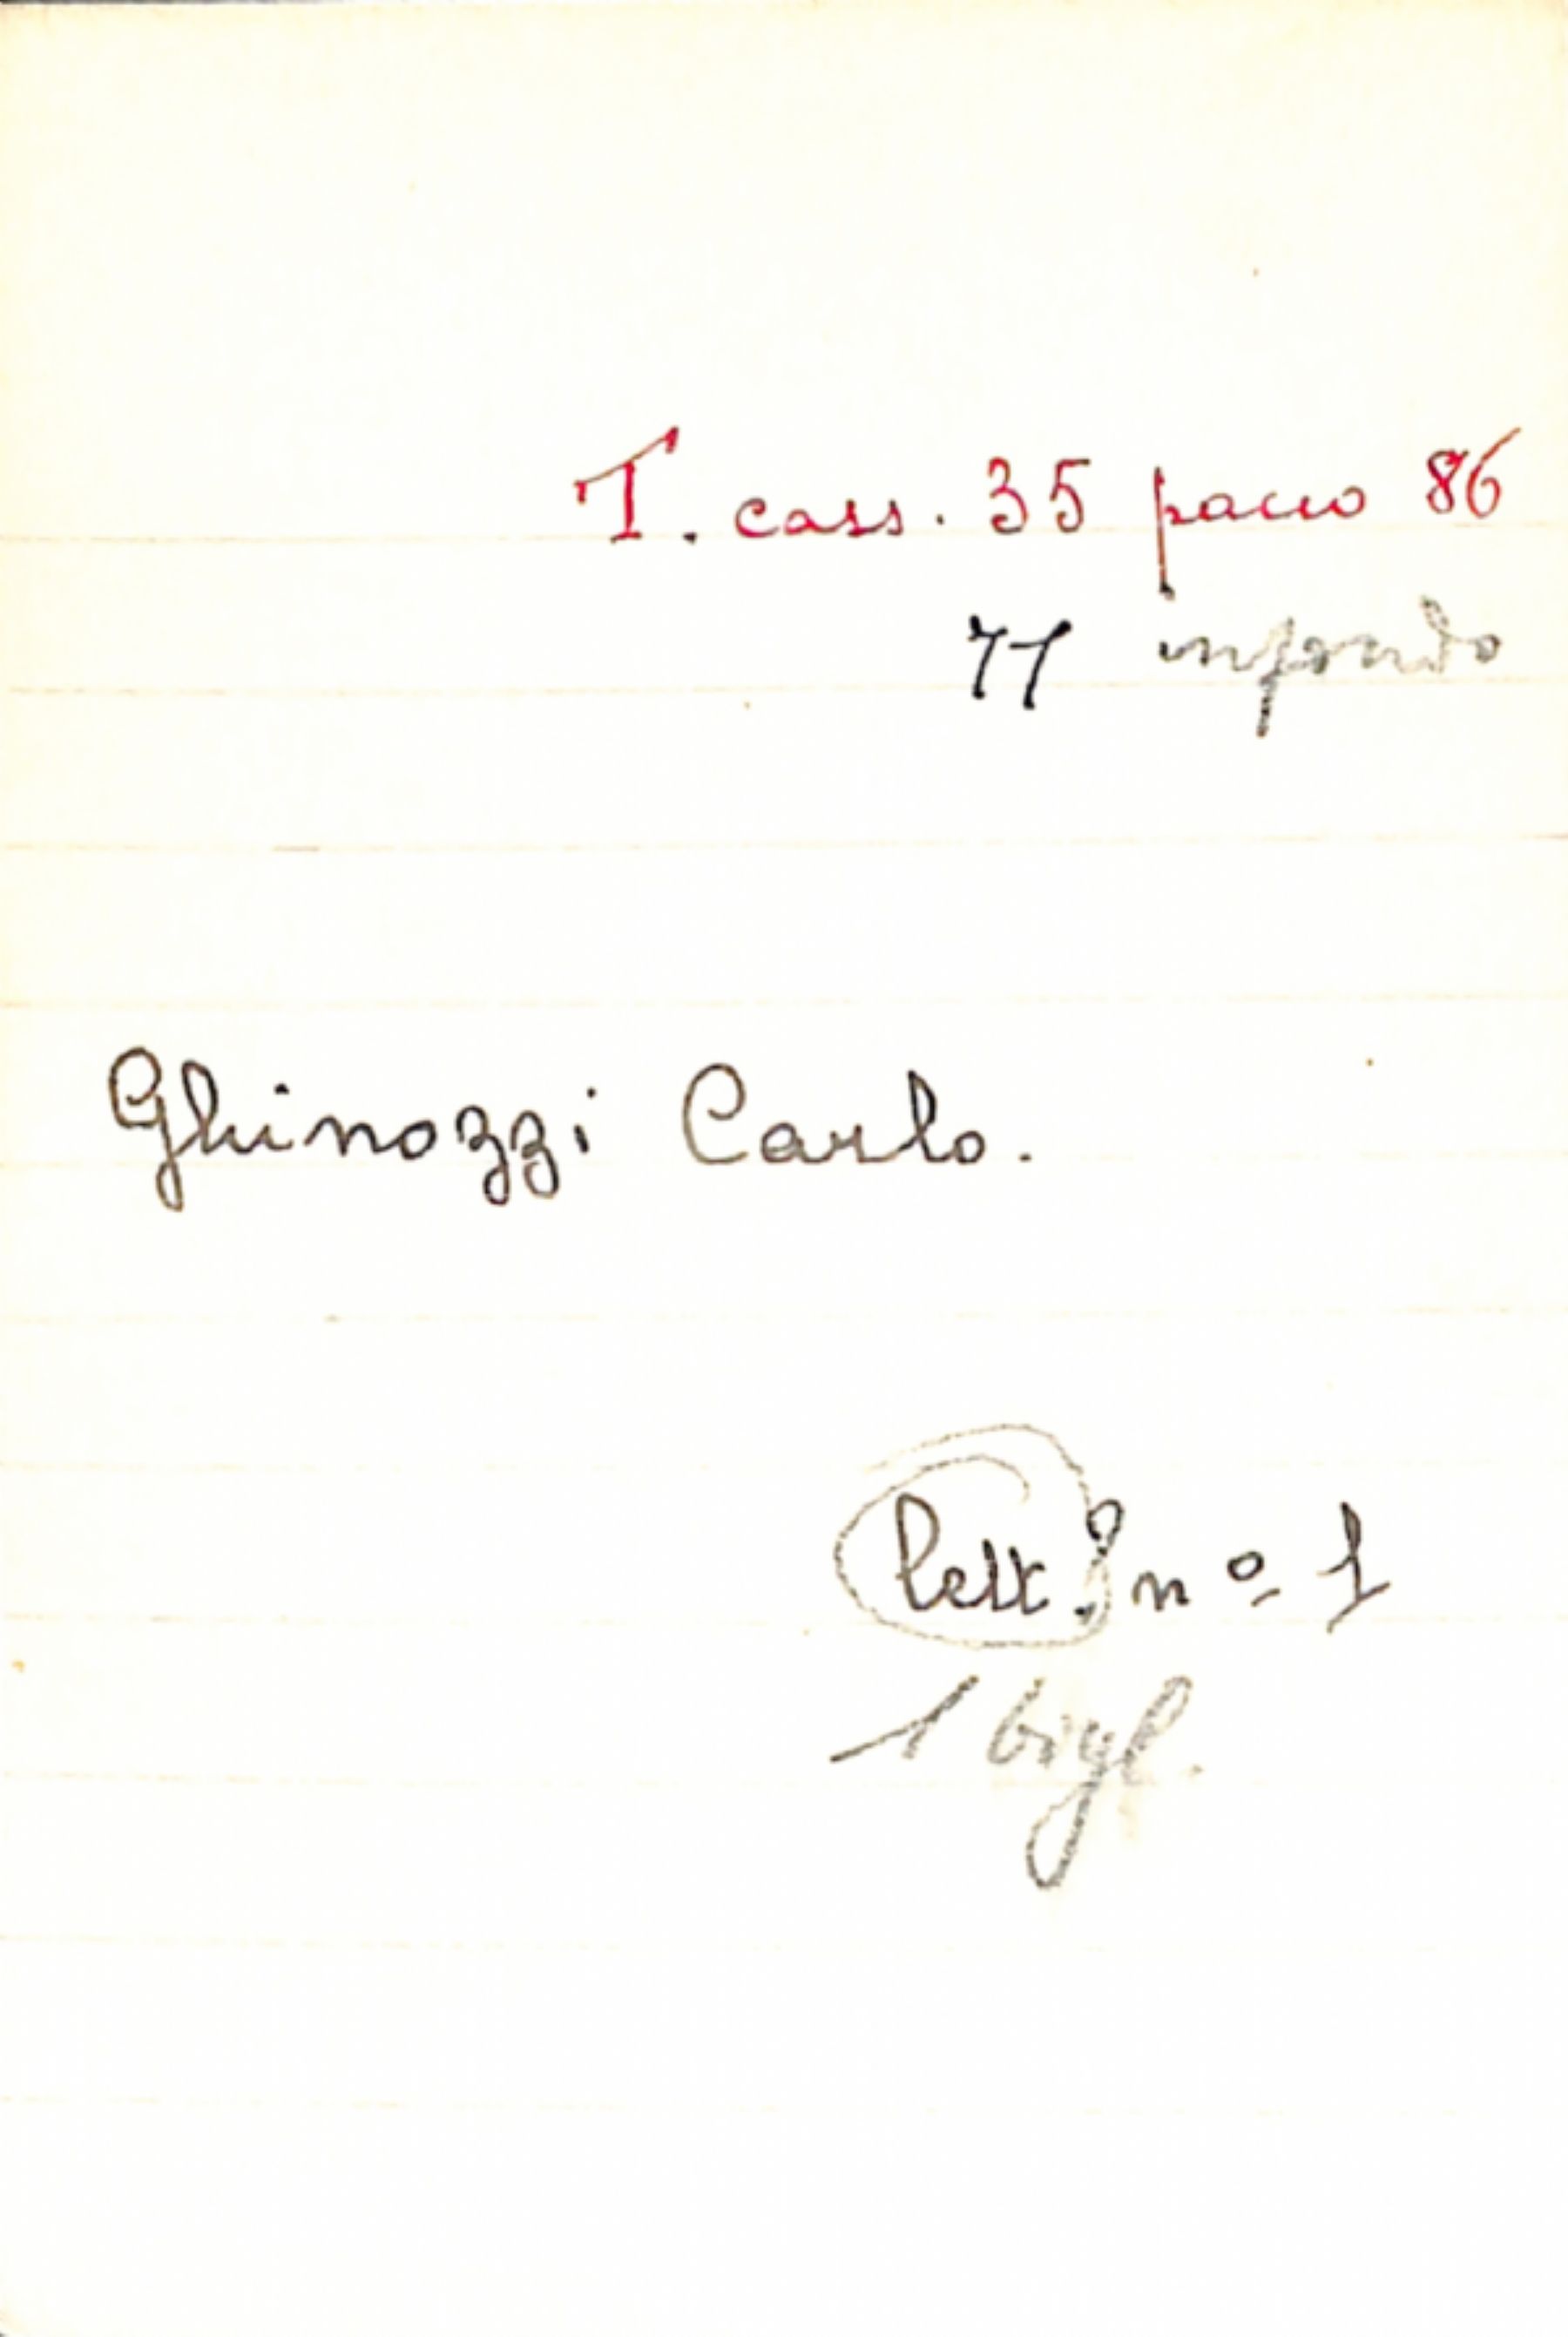 T. cass. 35 pacco 86
77 in fondo
Ghinozzi Carlo.
lett.? nº 1
1 bigl.